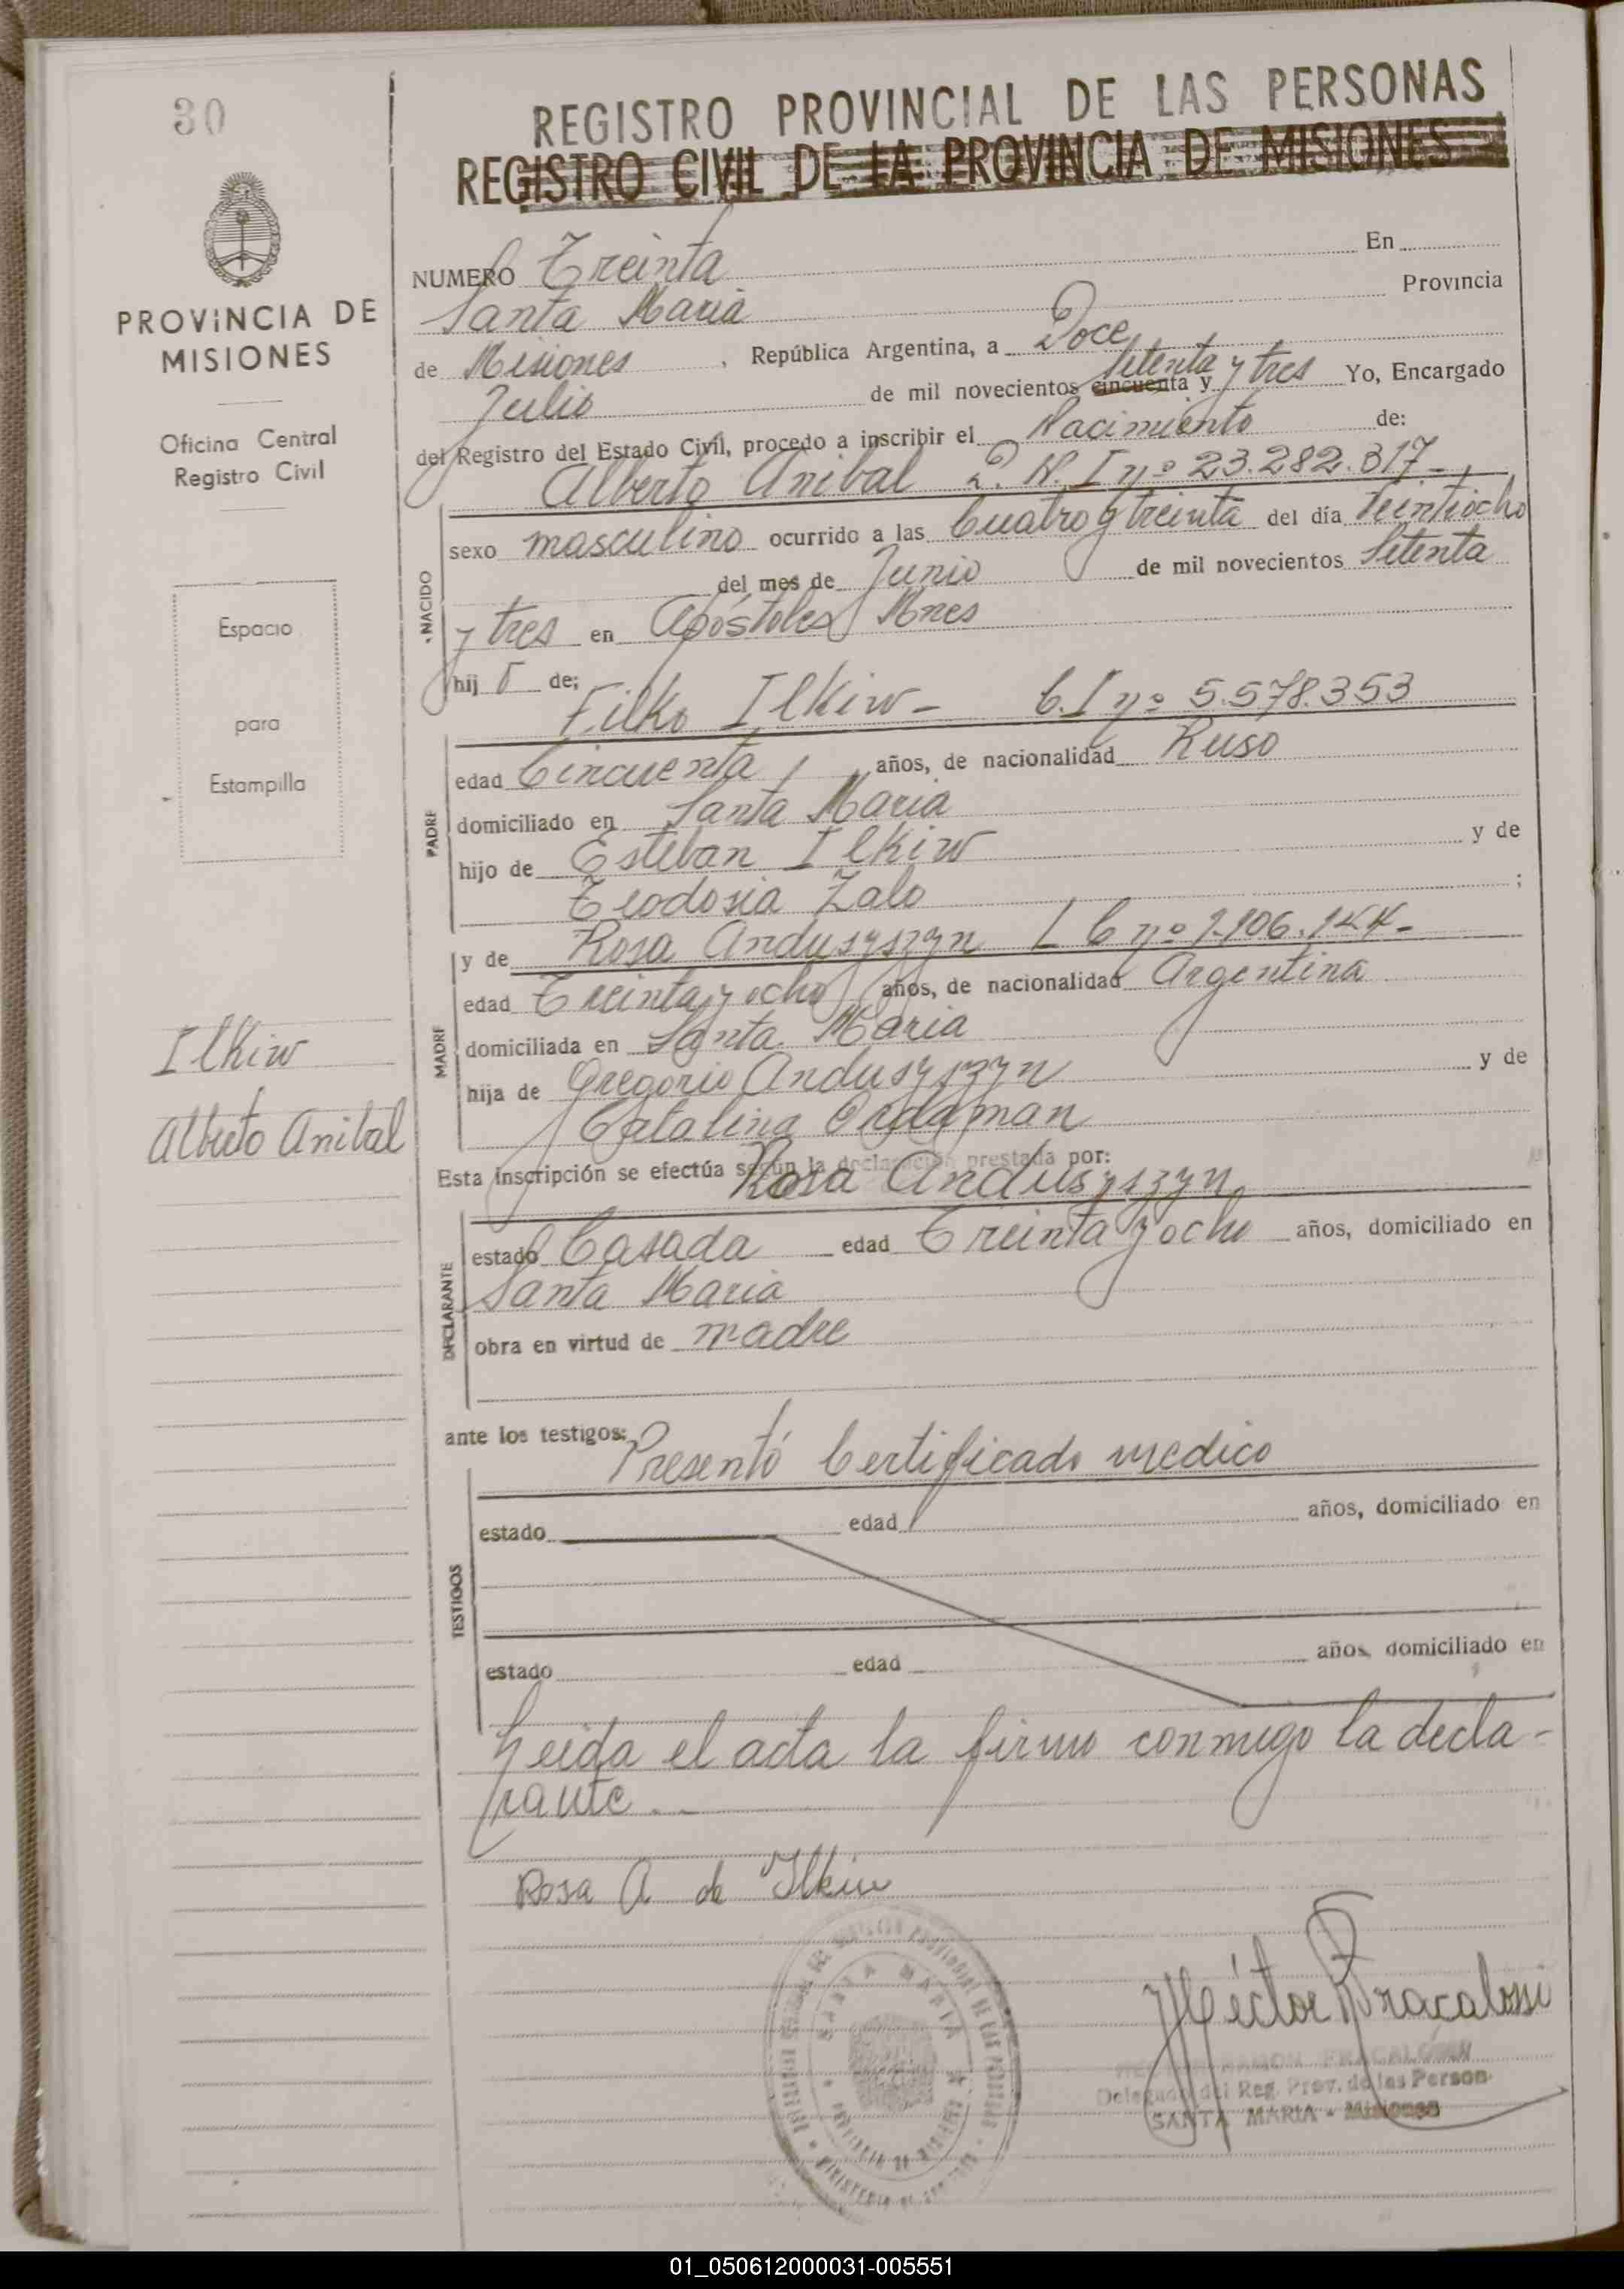 30
REGISTRO PROVINCIAL DE LAS PERSONAS
REGISTRO CIVIL DE LA PROVINCIA DE MISIONES
PROVINCIA DE
MISIONES
Oficina Central
Registro Civil
Espacio
para
Estampilla
Ilkiw
Alberto Anibal
NUMERO Treinta En
Santa Maria Provincia
de Misiones, República Argentina, a Doce
Julio de mil novecientos cincuenta y Setenta y tres Yo, Encargado
del Registro del Estado Civil, procedo a inscribir el Nacimiento de:
Alberto Anibal D. N. I nº 23.282.317-
NACIDO
sexo masculino ocurrido a las Cuatro y treinta del día Veintiocho
del mes de Junio de mil novecientos Setenta
y tres en Apóstoles Mnes
hij o de;
Filko Ilkiw- C.I nº 5.578.353
PADRE
edad Cincuenta años, de nacionalidad Ruso
domiciliado en Santa Maria
hijo de Esteban Ilkiw y de
Teodosia Zalo ;
MADRE
y de Rosa Andusyszyn L C nº 1.106.144-
edad Treinta y ocho años, de nacionalidad Argentina
domiciliada en Santa Maria
hija de Gregorio Andusyszyn y de
Catalina
Esta inscripción se efectúa según la declaración prestada por:
Rosa Andusyszyn
DECLARANTE
estado Casada edad Treinta y ocho años, domiciliado en
Santa Maria
obra en virtud de madre
ante los testigos:
Presentó Certificado medico
TESTIGOS
estado edad años, domiciliado en
estado edad años, domiciliado en
Leida el acta la firmo conmigo la decla-
rante.-
Rosa A de Ilkiw
SANTA MARIA
Héctor R Fracalossi
RAMON FRACALOSSI
Delegado del Reg. Prov. de las Person.
SANTA MARIA - Misiones
01_050612000031-005551